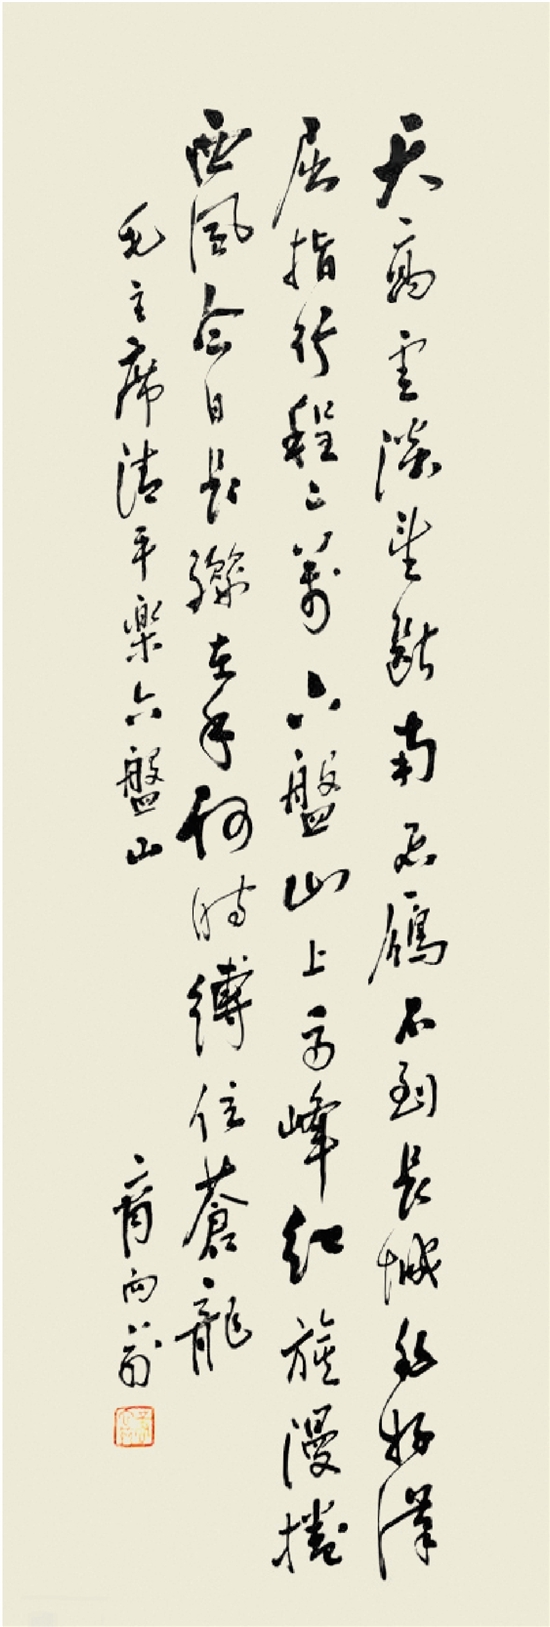 天高雲淡望斷南飛雁不到長城非好漢
屈指行程二萬六盤山上高峰紅旗漫捲
西風今日長纓在手何時縛住蒼龍
毛主席清平楽六盤山
向前